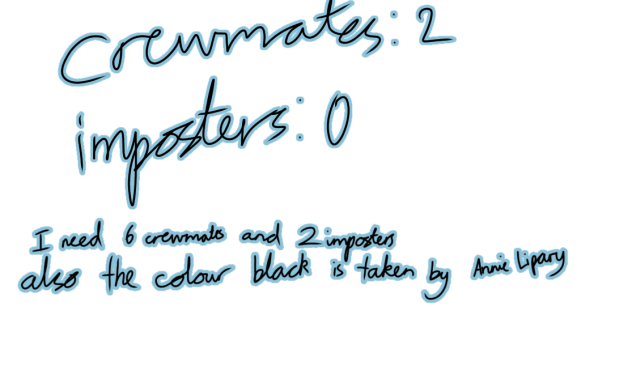 Crewmates: 2
imposters: 0
I need 6 crewmates and 2 imposters
also the colour black is taken by Annie Lipary